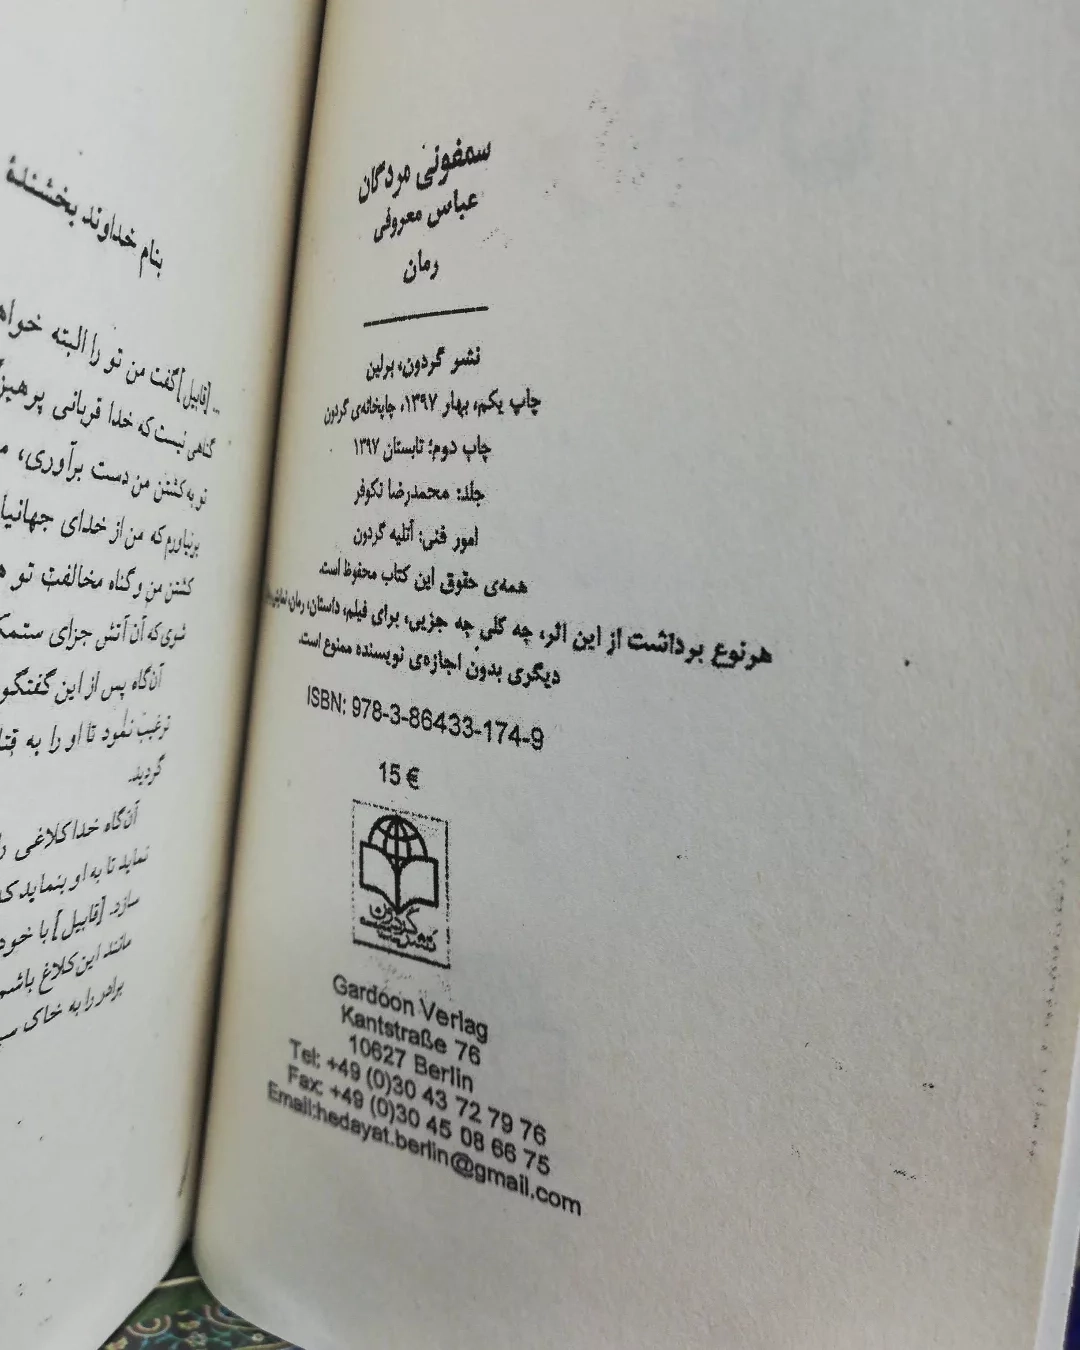 سمفونی مردگان
عباس معروفی
رمان
نشر گردون، برلین
چاپ یکم، بهار ۱۳۹۷، چاپخانه‌ی گردون
چاپ دوم: تابستان ۱۳۹۷
جلد: محمدرضا نکوفر
امور فنی: آتلیه گردون
همه‌ی حقوق این کتاب محفوظ است.
هرنوع برداشت از این اثر، چه کلی چه جزیی، برای فیلم، داستان، رمان،
دیگری بدون اجازه‌ی نویسنده ممنوع است.
ISBN: 978-3-86433-174-9
15 €
گردون
نشر
Gardoon Verlag
Kantstraße 76
10627 Berlin
Tel: +49 (0)30 43 72 79 76
Fax: +49 (0)30 45 08 66 75
Email:hedayat.berlin@gmail.com
بنام خداوند بخشندهٔ
... [قابیل] گفت من تو را البته
گناهی نیست که خدا قربانی
تو به کشتن من دست برآوری،
که من از خدای
کشتن من و گناه مخالفت تو
شوی که آن آتش جزای
آن‌گاه پس از این گفتگو
ترغیب نمود تا او را به
گردید.
آن‌گاه خدا کلاغی
نماید تا به او بنماید
سازد. [قابیل] با خود
مانند این کلاغ
برادر را به خاک